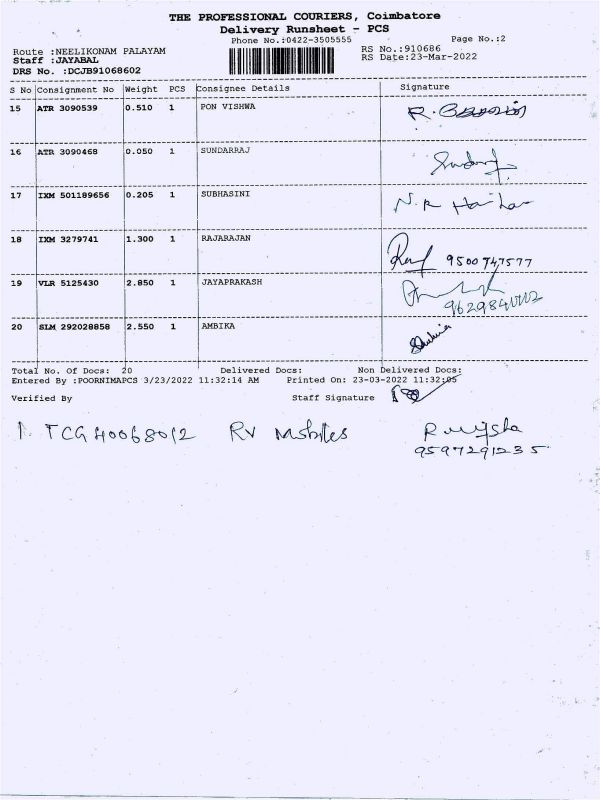 THE PROFESSIONAL COURIERS, Coimbatore
Delivery Runsheet - PCS
Phone No.:0422-3505555 Page No.:2
Route :NEELIKONAM PALAYAM RS No.:910686
Staff :JAYABAL RS Date:23-Mar-2022
DRS No. :DCJB91068602
S No Consignment No Weight PCS Consignee Details Signature
15 ATR 3090539 0.510 1 PON VISHWA
16 ATR 3090468 0.050 1 SUNDARRAJ
17 IXM 501189656 0.205 1 SUBHASINI N.R
18 IXM 3279741 1.300 1 RAJARAJAN 9500747577
19 VLR 5125430 2.850 1 JAYAPRAKASH
20 SLM 292028858 2.550 1 AMBIKA
Total No. Of Docs: 20 Delivered Docs: Non Delivered Docs:
Entered By :POORNIMAPCS 3/23/2022 11:32:14 AM Printed On: 23-03-2022 11:32:05
Verified By Staff Signature
1. TCG 40068012 RV Mobiles
9597291235